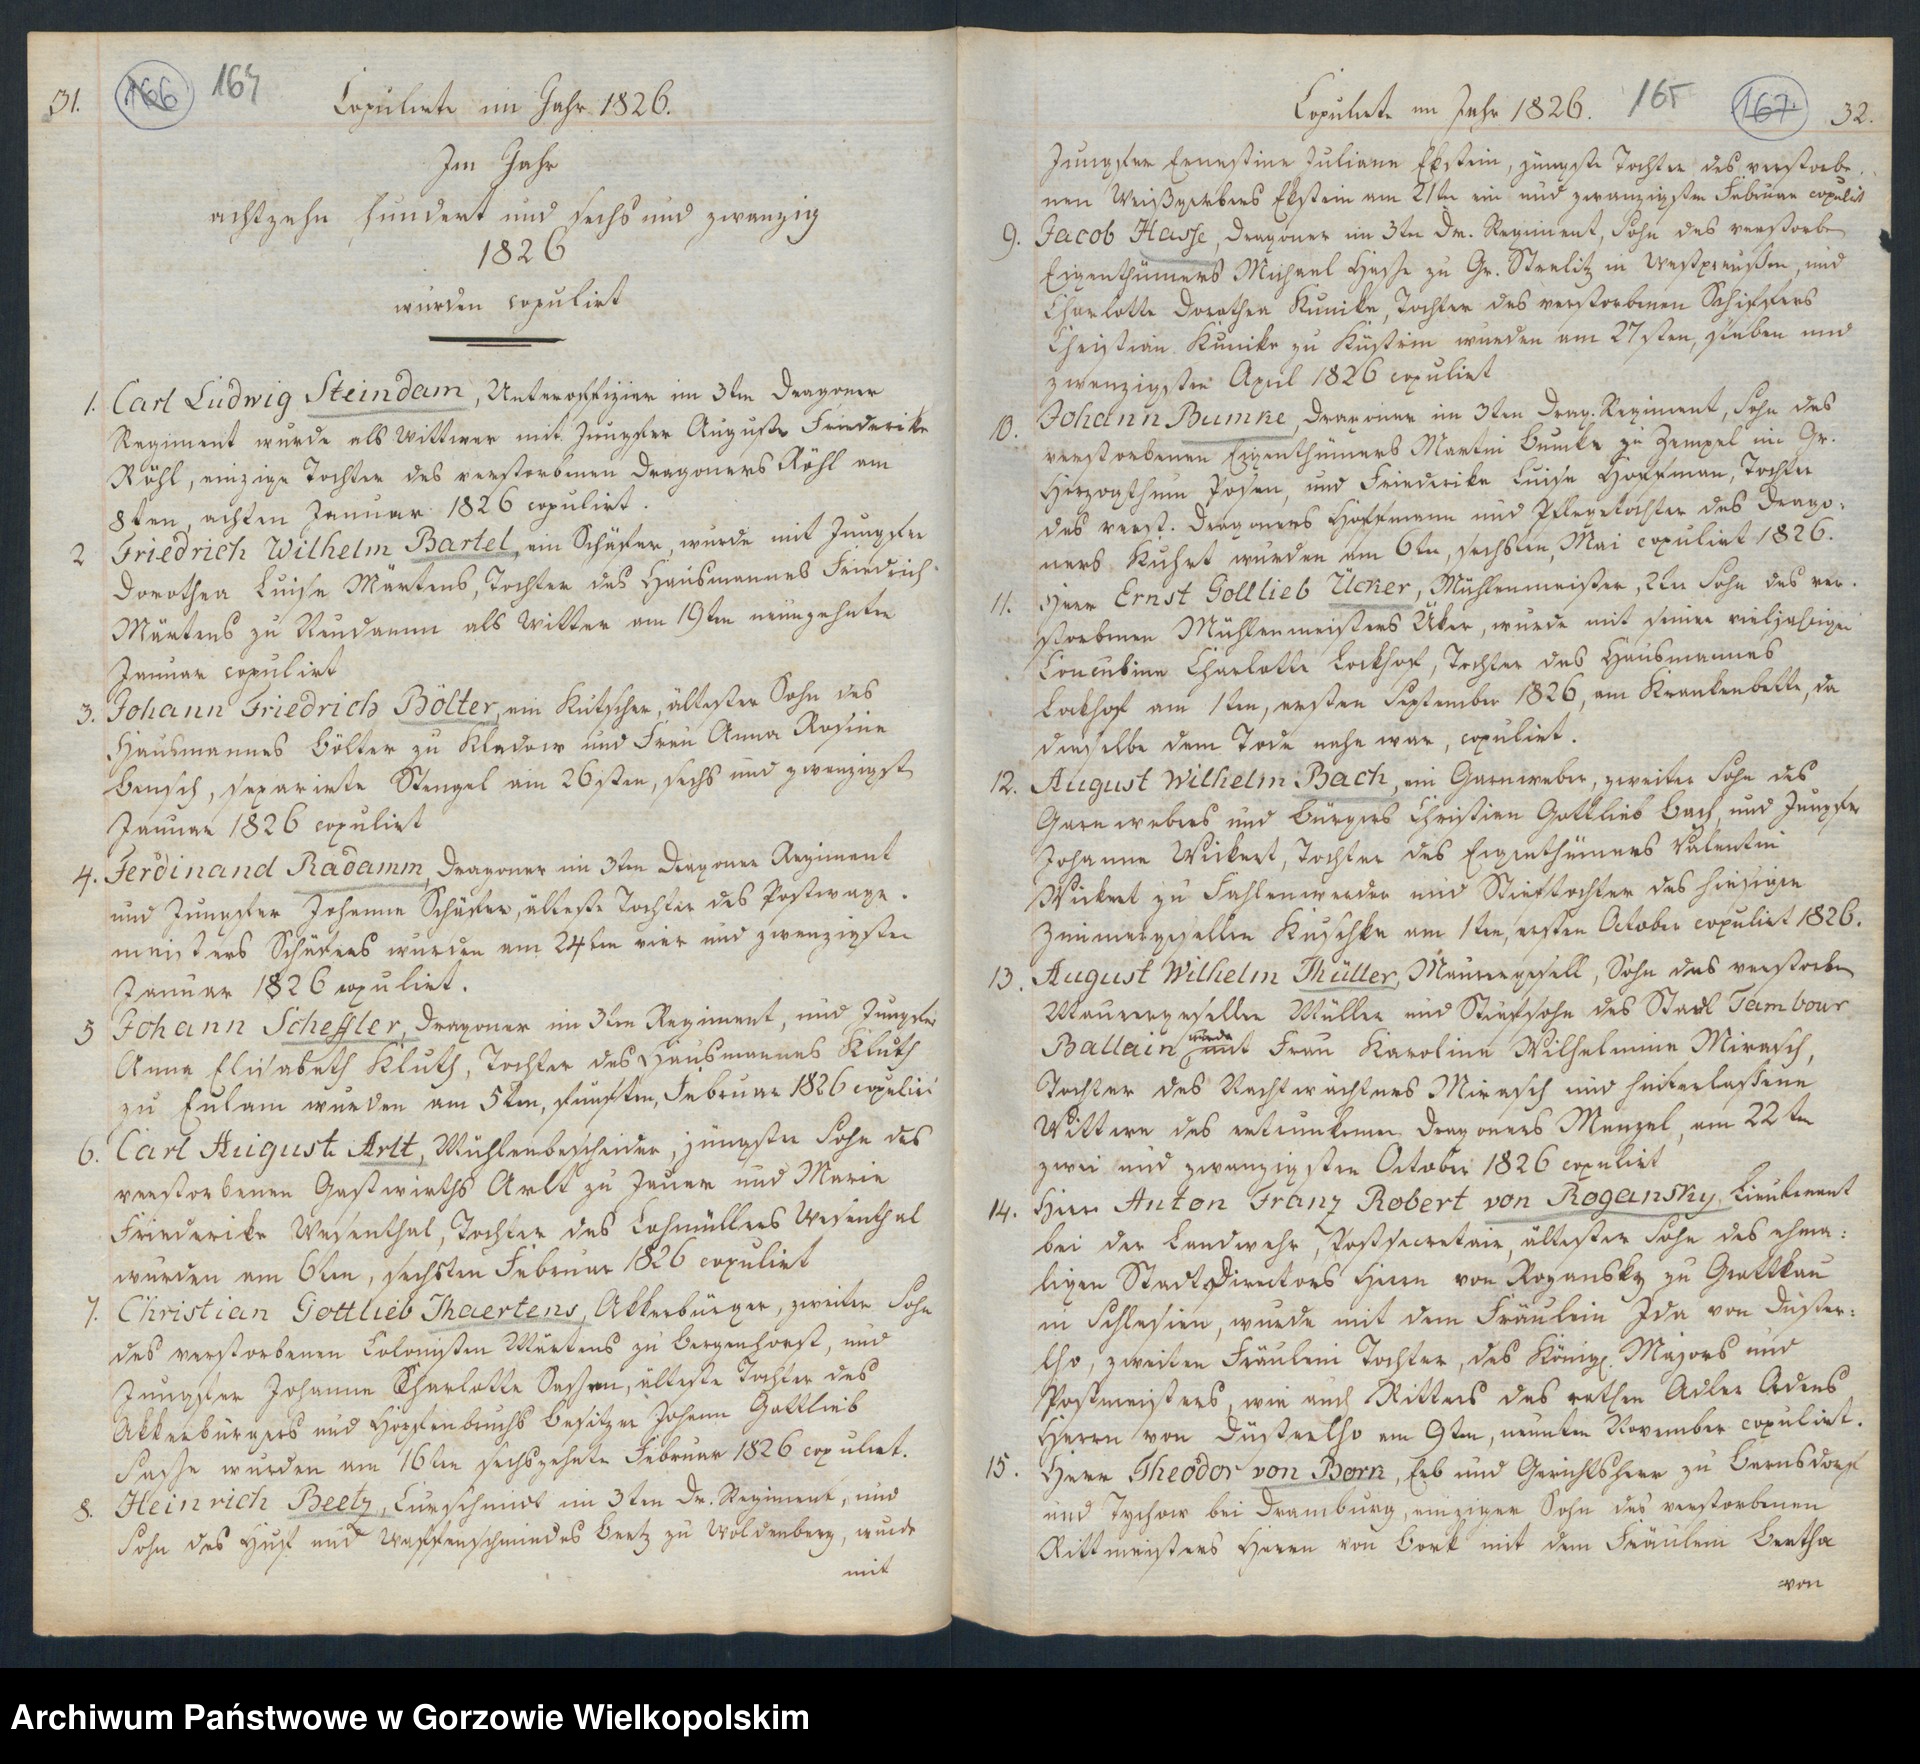 31.
166
164
Copulirte im Jahr 1826.
Im Jahr
achtzehn hundert und sechs und zwanzig
1826
wurden copulirt
1. Carl Ludwig Steindam, Unteroffizier im 3ten Dragoner
Regiment wurde als Wittwer mit Jungfer Auguste Friederike
Röhl, einzige Tochter des verstorbenen Dragoners Röhl am
8ten, achten Januar 1826 copulirt.
2 Friedrich Wilhelm Bartel, ein Schäfer, wurde mit Jungfer
Dorothea Luise Märtens, Tochter des Hausmannes Friedrich
Märtens zu Neudamm als Wittwer am 19ten neunzehnten
Januar copulirt
3. Johann Friedrich Bölter, ein Kutscher, ältester Sohn des
Hausmannes Bölter zu Kladow und Frau Anna Rosine
Bensch, separirte Stengel am 26sten, sechs und zwanzigst
Januar 1826 copulirt
4. Ferdinand Radamm, Dragoner im 3ten Dragoner Regiment
und Jungfer Johanne Schäfer, älteste Tochter des Postwage-
meisters Schäfers wurden am 24ten vier und zwanzigsten
Januar 1826 copulirt.
5 Johann Scheffler, Dragoner im 3ten Regiment, und Jungfer
Anna Elisabeth Kluth, Tochter des Hausmannes Kluth
zu Eulam wurden am 5ten, fünften, Februar 1826 copulirt
6. Carl August Arlt, Mühlenbescheider, jüngster Sohn des
verstorbenen Gastwirths Arlt zu Jauer und Marie
Friederike Wesenthal, Tochter des Lohmüllers Wesenthal
wurden am 6ten, sechsten Februar 1826 copulirt
7. Christian Gottlieb Maertens, Akkerbürger, zweiter Sohn
des verstorbenen Colonisten Märtens zu Bergenhorst, und
Jungfer Johanne Charlotte Sasse, älteste Tochter des
Akkerbürgers und Besitzer Johann Gottlieb
Sasse wurden am 16ten sechszehnten Februar 1826 copulirt.
8. Heinrich Beetz, Curschmidt im 3ten Dr. Regiment, und
Sohn des Huf und Waffenschmiedes Beetz zu Woldenberg, wurde
mit
Copulirte im Jahr 1826.
165
167.
32.
Jungfer Ernestine Juliane Ekstein, jüngste Tochter des verstorbe-
nen Weißgerbers Ekstein am 21ten ein und zwanzigsten Februar copulirt
9. Jacob Hasse, Dragoner im 3ten Dr. Regiment, Sohn des verstorben
Eigenthümers Michael Hasse zu Gr. Strelitz in Westpreußen, und
Charlotte Dorothea Kunike, Tochter des verstorbenen Schiffers
Christian Kunike zu Küstrin wurden am 27sten, sieben und
zwanzigsten April 1826 copulirt
10. Johann Bumke, Dragoner im 3ten Drag. Regiment, Sohn des
verstorbenen Eigenthümers Martin Bumke zu Zempel im Gr.
Herzogthum Posen, und Friederike Luise Hoffman, Tochter
des verst. Dragoners Hoffmann und Pflegetochter des Drago-
ners Kuhrt wurden am 6ten, sechsten, Mai copulirt 1826.
11. Herr Ernst Gottlieb Ücker, Mühlenmeister, 2ter Sohn des ver-
storbenen Mühlenmeisters Üker, wurde mit seiner vieljährigen
Concubine Charlotte Lockhof, Tochter des Hausmannes
Lockhof am 1ten, ersten September 1826, am Krankenbette, da
dieselbe dem Tode nahe war, copulirt.
12. August Wilhelm Bach, ein Garnweber, zweiter Sohn des
Garnwebers und Bürgers Christian Gottlieb Bach, und Jungfer
Johanne Wickert, Tochter des Eigenthümers Valentin
Wickert zu Fahlenwerder und Stieftochter des hiesigen
Zimmergesellen Kuschke am 1ten, ersten October copulirt 1826.
13. August Wilhelm Müller, Maurergesell, Sohn des verstorben
Maurergesellen Müller und Stiefsohn des Stadt Tambour
Ballain wurde mit Frau Karoline Wilhelmine Mirasch,
Tochter des Nachtwächters Mirasch und hinterlassene
Wittwe des ertrunkenen Dragoners Menzel, am 22ten
zwei und zwanzigsten October 1826 copulirt
14. Herr Anton Franz Robert von Rogansky, Lieutenant
bei der Landwehr, Postsecretair, ältester Sohn des ehma-
ligen Stadt Directors Herrn von Rogansky zu Grottkau
in Schlesien, wurde mit dem Fräulein Ida von Düster-
lho, zweiten Fräulein Tochter, des Königl. Majors und
Postmeisters, wie auch Ritters des rothen Adler Ordens
Herrn von Düsterlho am 9ten, neunten November copulirt.
15. Herr Theodor von Born, Erb und Gerichtsherr zu Bernsdorf
und Tychow bei Dramburg, einziger Sohn des verstorbenen
Rittmeisters Herrn von Bork mit dem Fräulein Bertha
von
Archiwum Państwowe w Gorzowie Wielkopolskim